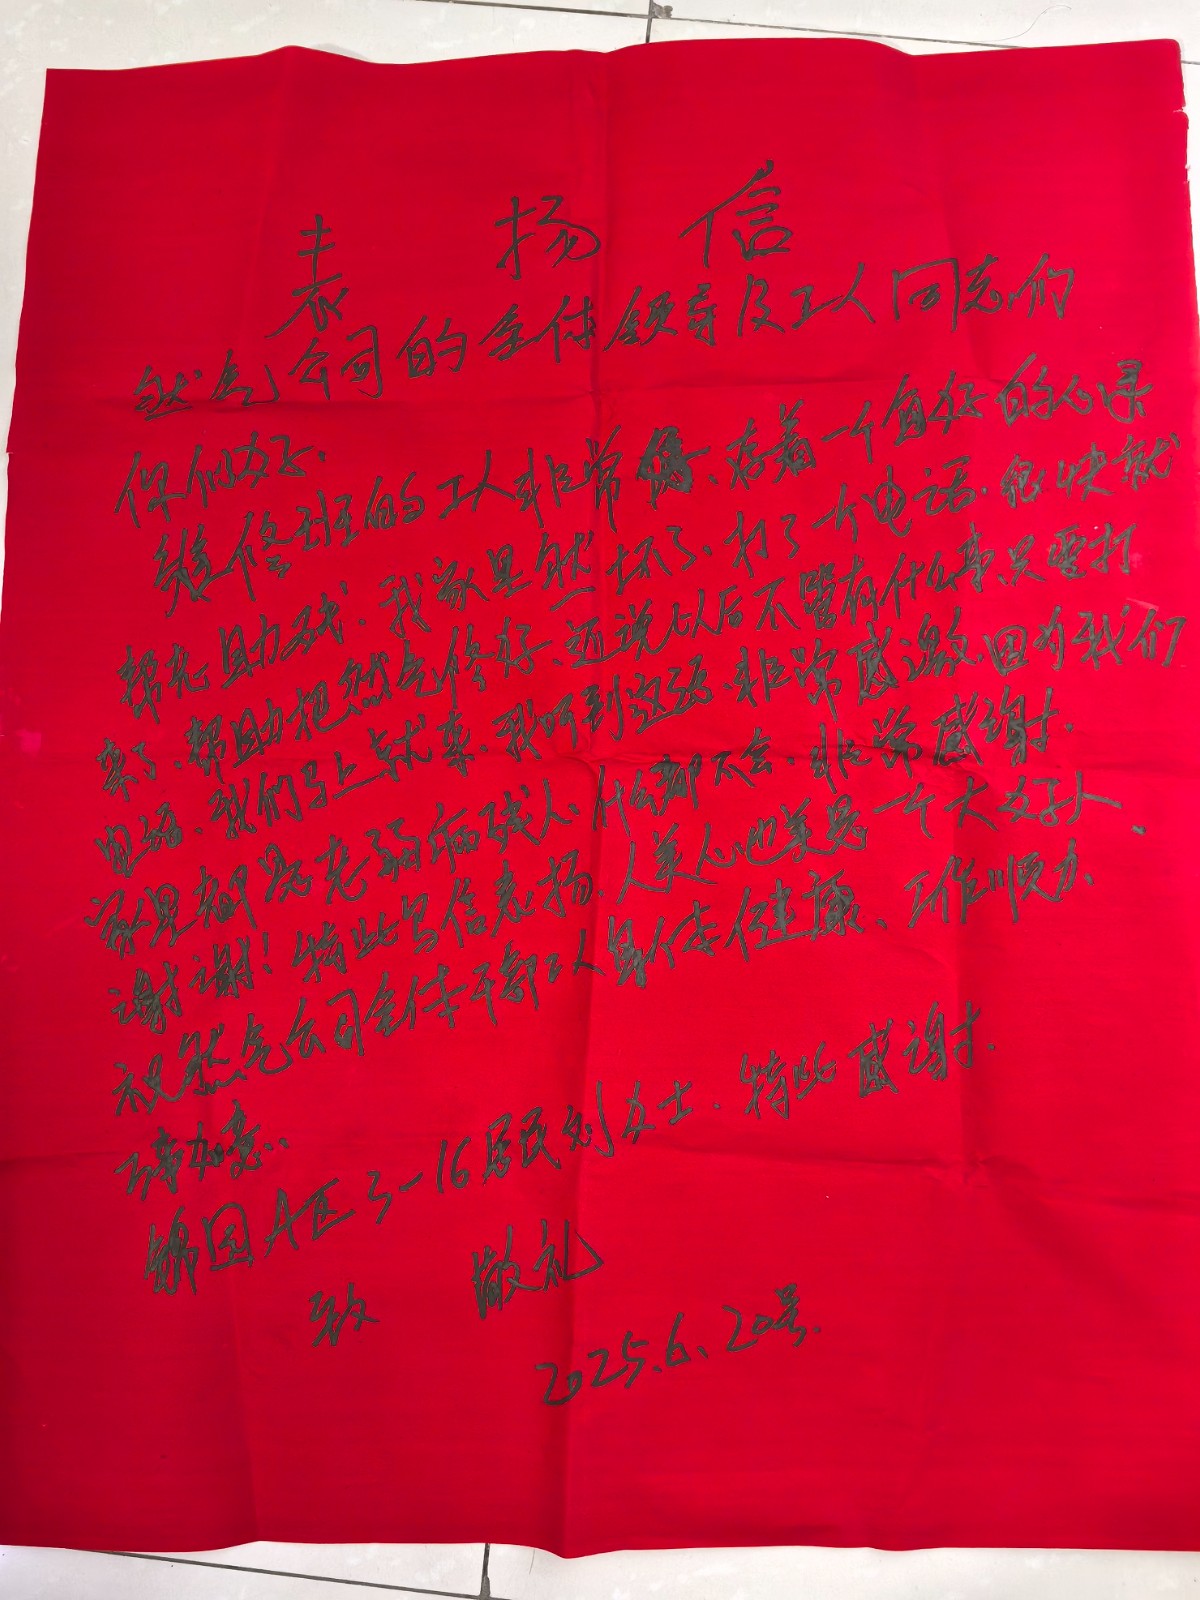 表扬信
然气公司的全体领导及工人同志们
你们好.
维修班的工人非常好、存着一个良好的心灵
帮老助残.我家里然坏了、打了个电话.很快就
来了.帮助把然气修好、还说以后不管有什么事只要打
电话、我们马上就来.我听到这话.非常感激.因为我们
家里都是老弱病残人.什么都不会.非常感谢.
谢谢!特此写信表扬、人美心也美是一个大好人、
祝然气公司全体干部工人身体健康、工作顺力、
事如意..
锦园A区3-16居民刘力士.特此感谢.
致 敬礼
2025.6.20号.